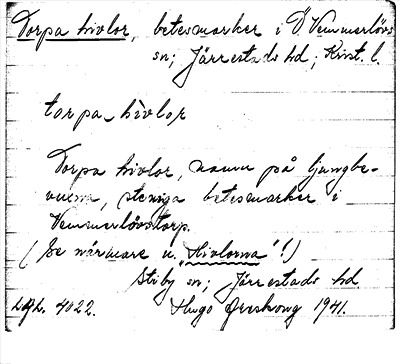 Torpa hivlor, betesmarker i Ö. Vemmerlövs
sn; Järrestads hd; Krist. l.
torpa_hìvlọr
Torpa hivlor, namn på ljungbe-
vuxna, steniga betesmarker i
Vemmerlövstorp.
(Se närmare u. "Hivlorna"!)
Stiby sn; Järrestads hd.
4022. Hugo Areskoug 1941.